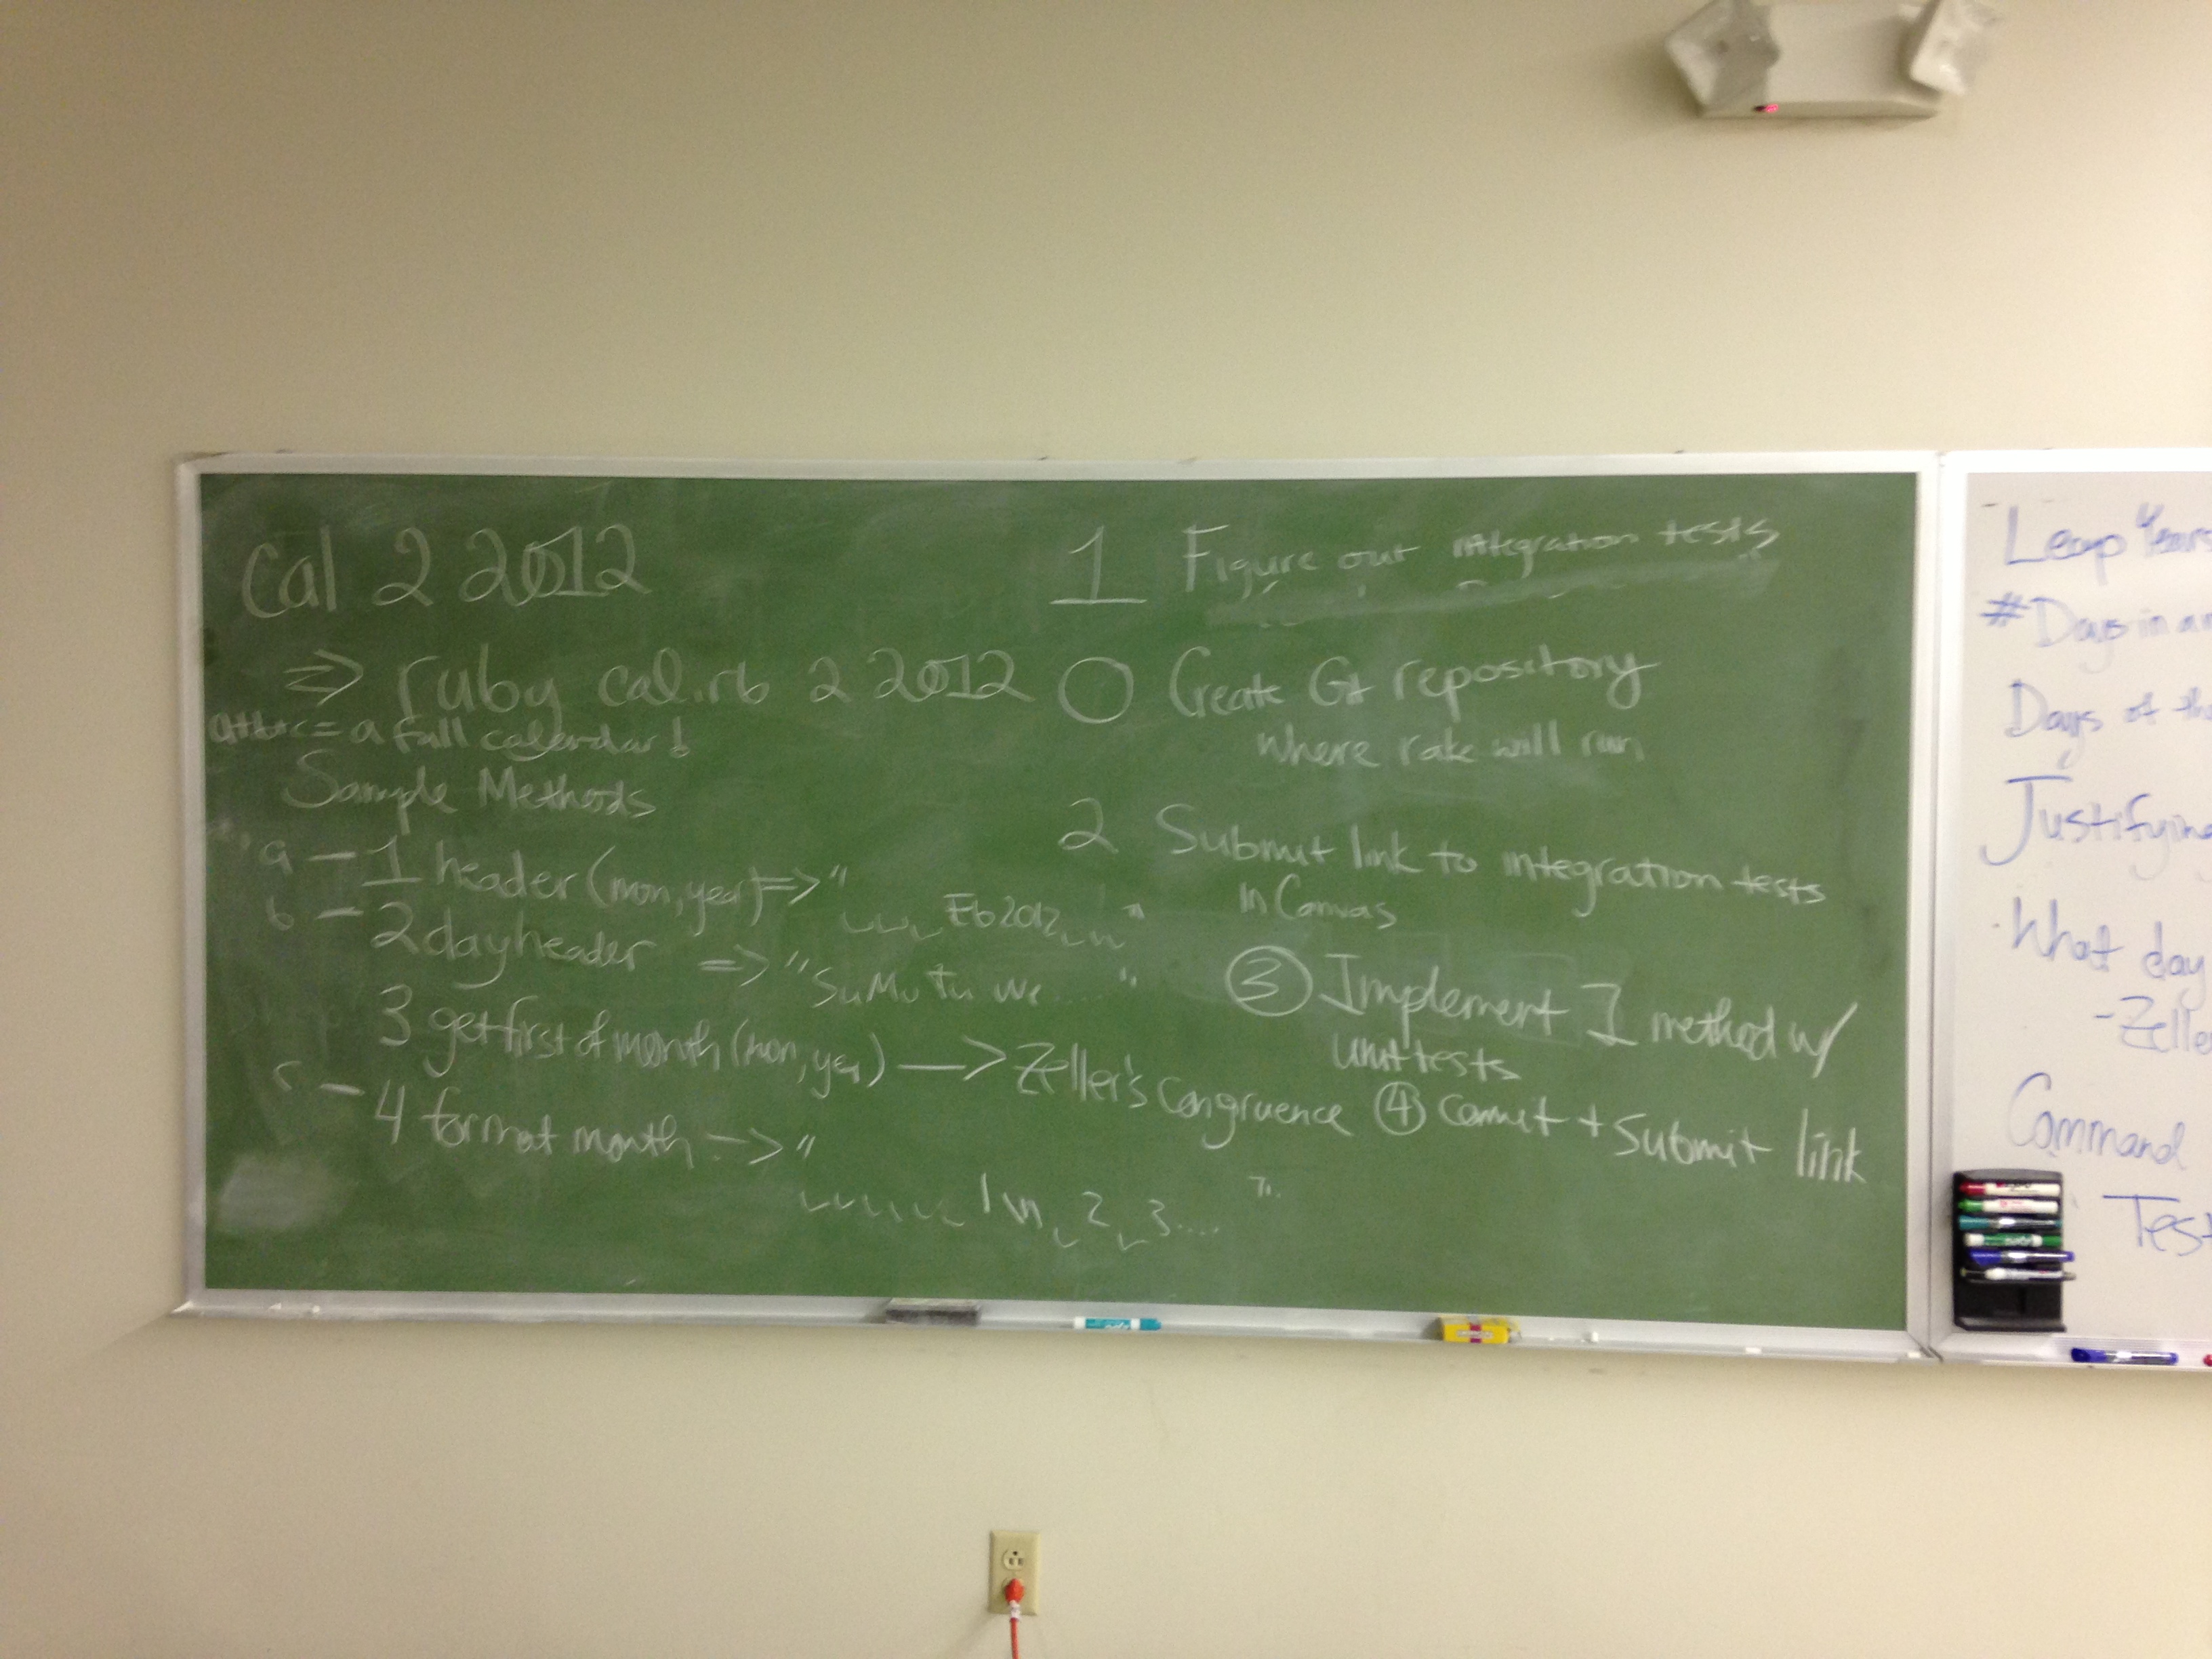 Cal 2 2012
=> ruby cal.rb 2 2012
a+b+c = a full calendar!
Sample Methods
a – 1 header (mon, year) => "
Feb 2012 \n"
b – 2 dayheader => "Su Mo Tu We ...... "
3 get first of month (mon, year) —> Zeller's Congruence
c – 4 format month -> "
1 \n 2 3.... "
1 Figure out integration tests
0 Create Git repository
where rake will run
2 Submit link to integration tests
in Canvas
3 Implement 1 method w/
unit tests
4 Commit + Submit link
Leap Years
# Days in a
Days of the
Justifying
What day
- Zeller
Command
Test